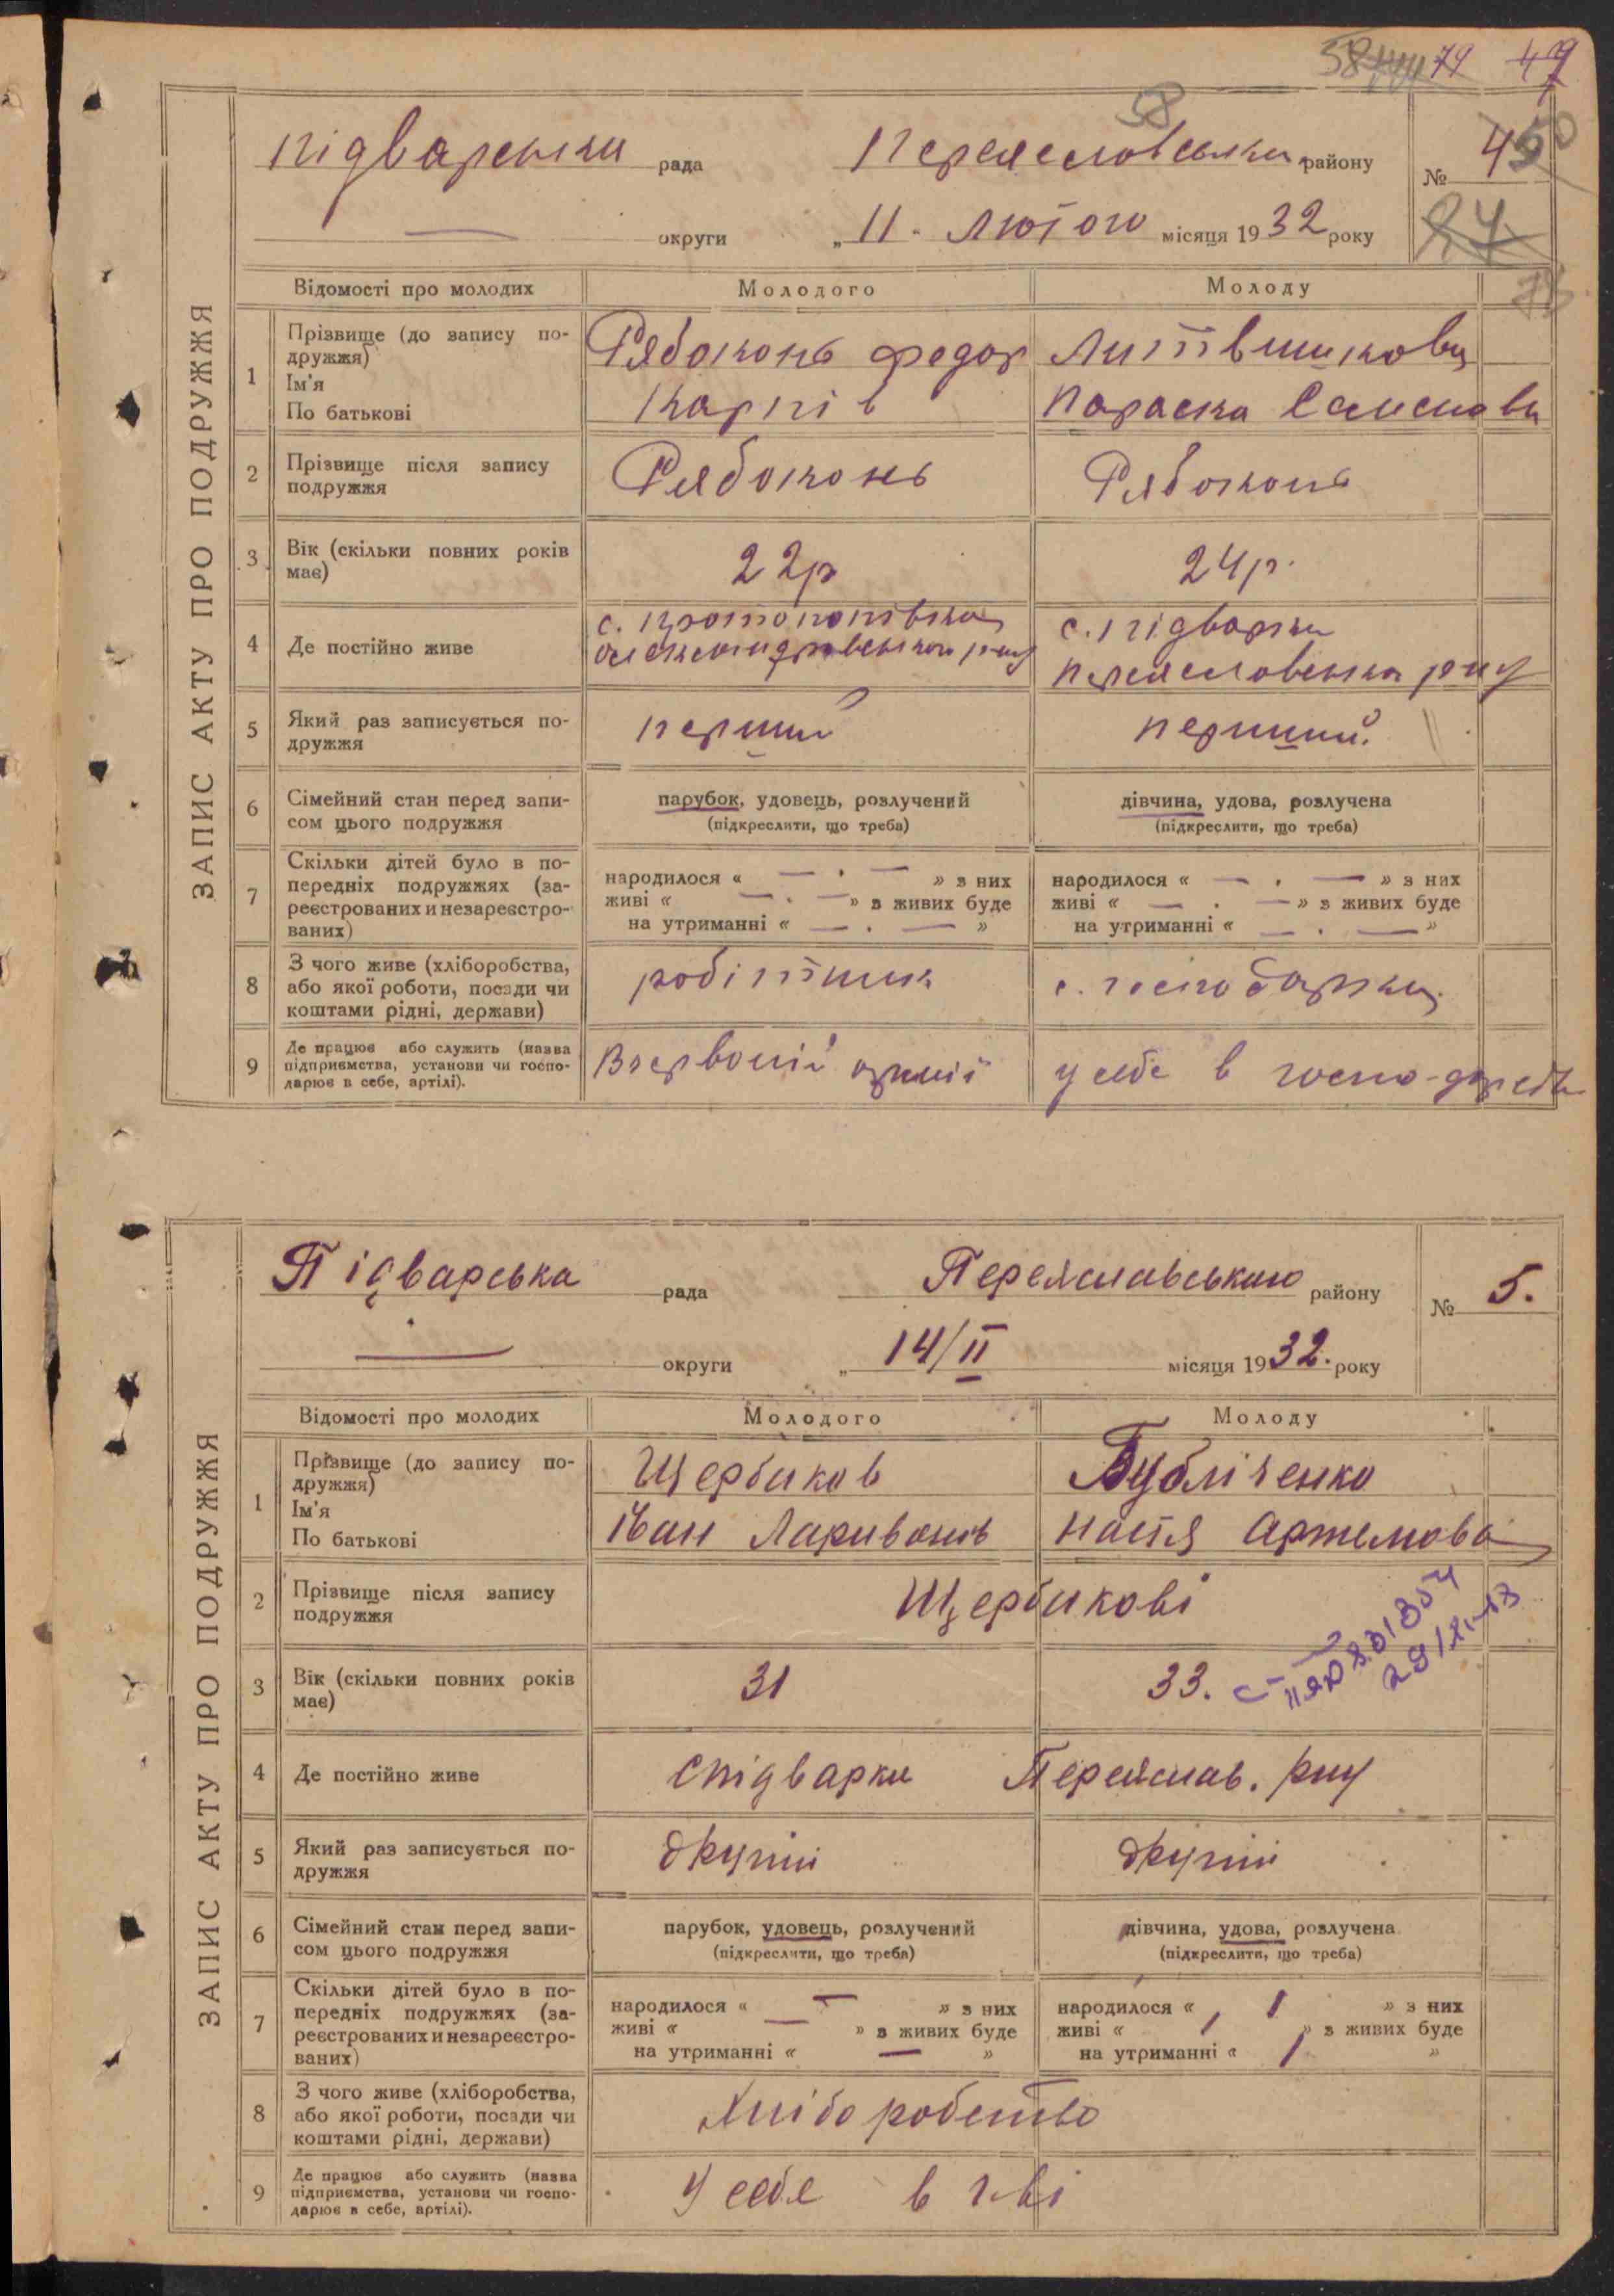 79 49
58
підварська рада Переяславська району № 4
округи „ 11. лютого місяця 1932 року
ЗАПИС АКТУ ПРО ПОДРУЖЖЯ
Відомості про молодих Молодого Молоду
1 Прізвище (до запису по-
дружжя)
Ім'я
По батькові
Рябоконь Федор
Карпів
Литвишкова
Параска Семенова
2 Прізвище після запису
подружжя
Рябоконь Рябоконь
3 Вік (скільки повних років
має)
22р 24р.
4 Де постійно живе
с. протопопівка
с. підварки
Переяславська р-ну
5 Який раз записується по-
дружжя
перший перший.
6 Сімейний стан перед запи-
сом цього подружжя
парубок, удовець, розлучений
(підкреслити, що треба)
дівчина, удова, розлучена
(підкреслити, що треба)
7 Скільки дітей було в по-
передніх подружжях (за-
реєстрованих и незареєстро-
ваних)
народилося « — . — » з них
живі « — . — » з живих буде
на утриманні « — . — »
народилося « — . — » з них
живі « — . — » з живих буде
на утриманні « — . — »
8 З чого живе (хліборобства,
або якої роботи, посади чи
коштами рідні, держави)
робітник с. господарка
9 Де працює або служить (назва
підприємства, установи чи госпо-
дарює в себе, артілі).
В червоній армії у себе в госпо-дарстві
Підварська рада Переяславського району № 5.
округи „ 14/II місяця 1932. року
ЗАПИС АКТУ ПРО ПОДРУЖЖЯ
Відомості про молодих Молодого Молоду
1 Прізвище (до запису по-
дружжя)
Ім'я
По батькові
Щербиков
Іван Ларивонів
Бубліченко
Настя Артемова
2 Прізвище після запису
подружжя
Щербикові
3 Вік (скільки повних років
має)
31 33.
4 Де постійно живе
с підварки Переяслав. р-ну
5 Який раз записується по-
дружжя
другий другий
6 Сімейний стан перед запи-
сом цього подружжя
парубок, удовець, розлучений
(підкреслити, що треба)
дівчина, удова, розлучена
(підкреслити, що треба)
7 Скільки дітей було в по-
передніх подружжях (за-
реєстрованих и незареєстро-
ваних)
народилося « — » з них
живі « — » з живих буде
на утриманні « — »
народилося « 1 » з них
живі « 1 » з живих буде
на утриманні « 1 »
8 З чого живе (хліборобства,
або якої роботи, посади чи
коштами рідні, держави)
Хліборобство
9 Де працює або служить (назва
підприємства, установи чи госпо-
дарює в себе, артілі).
У себе в г-ві